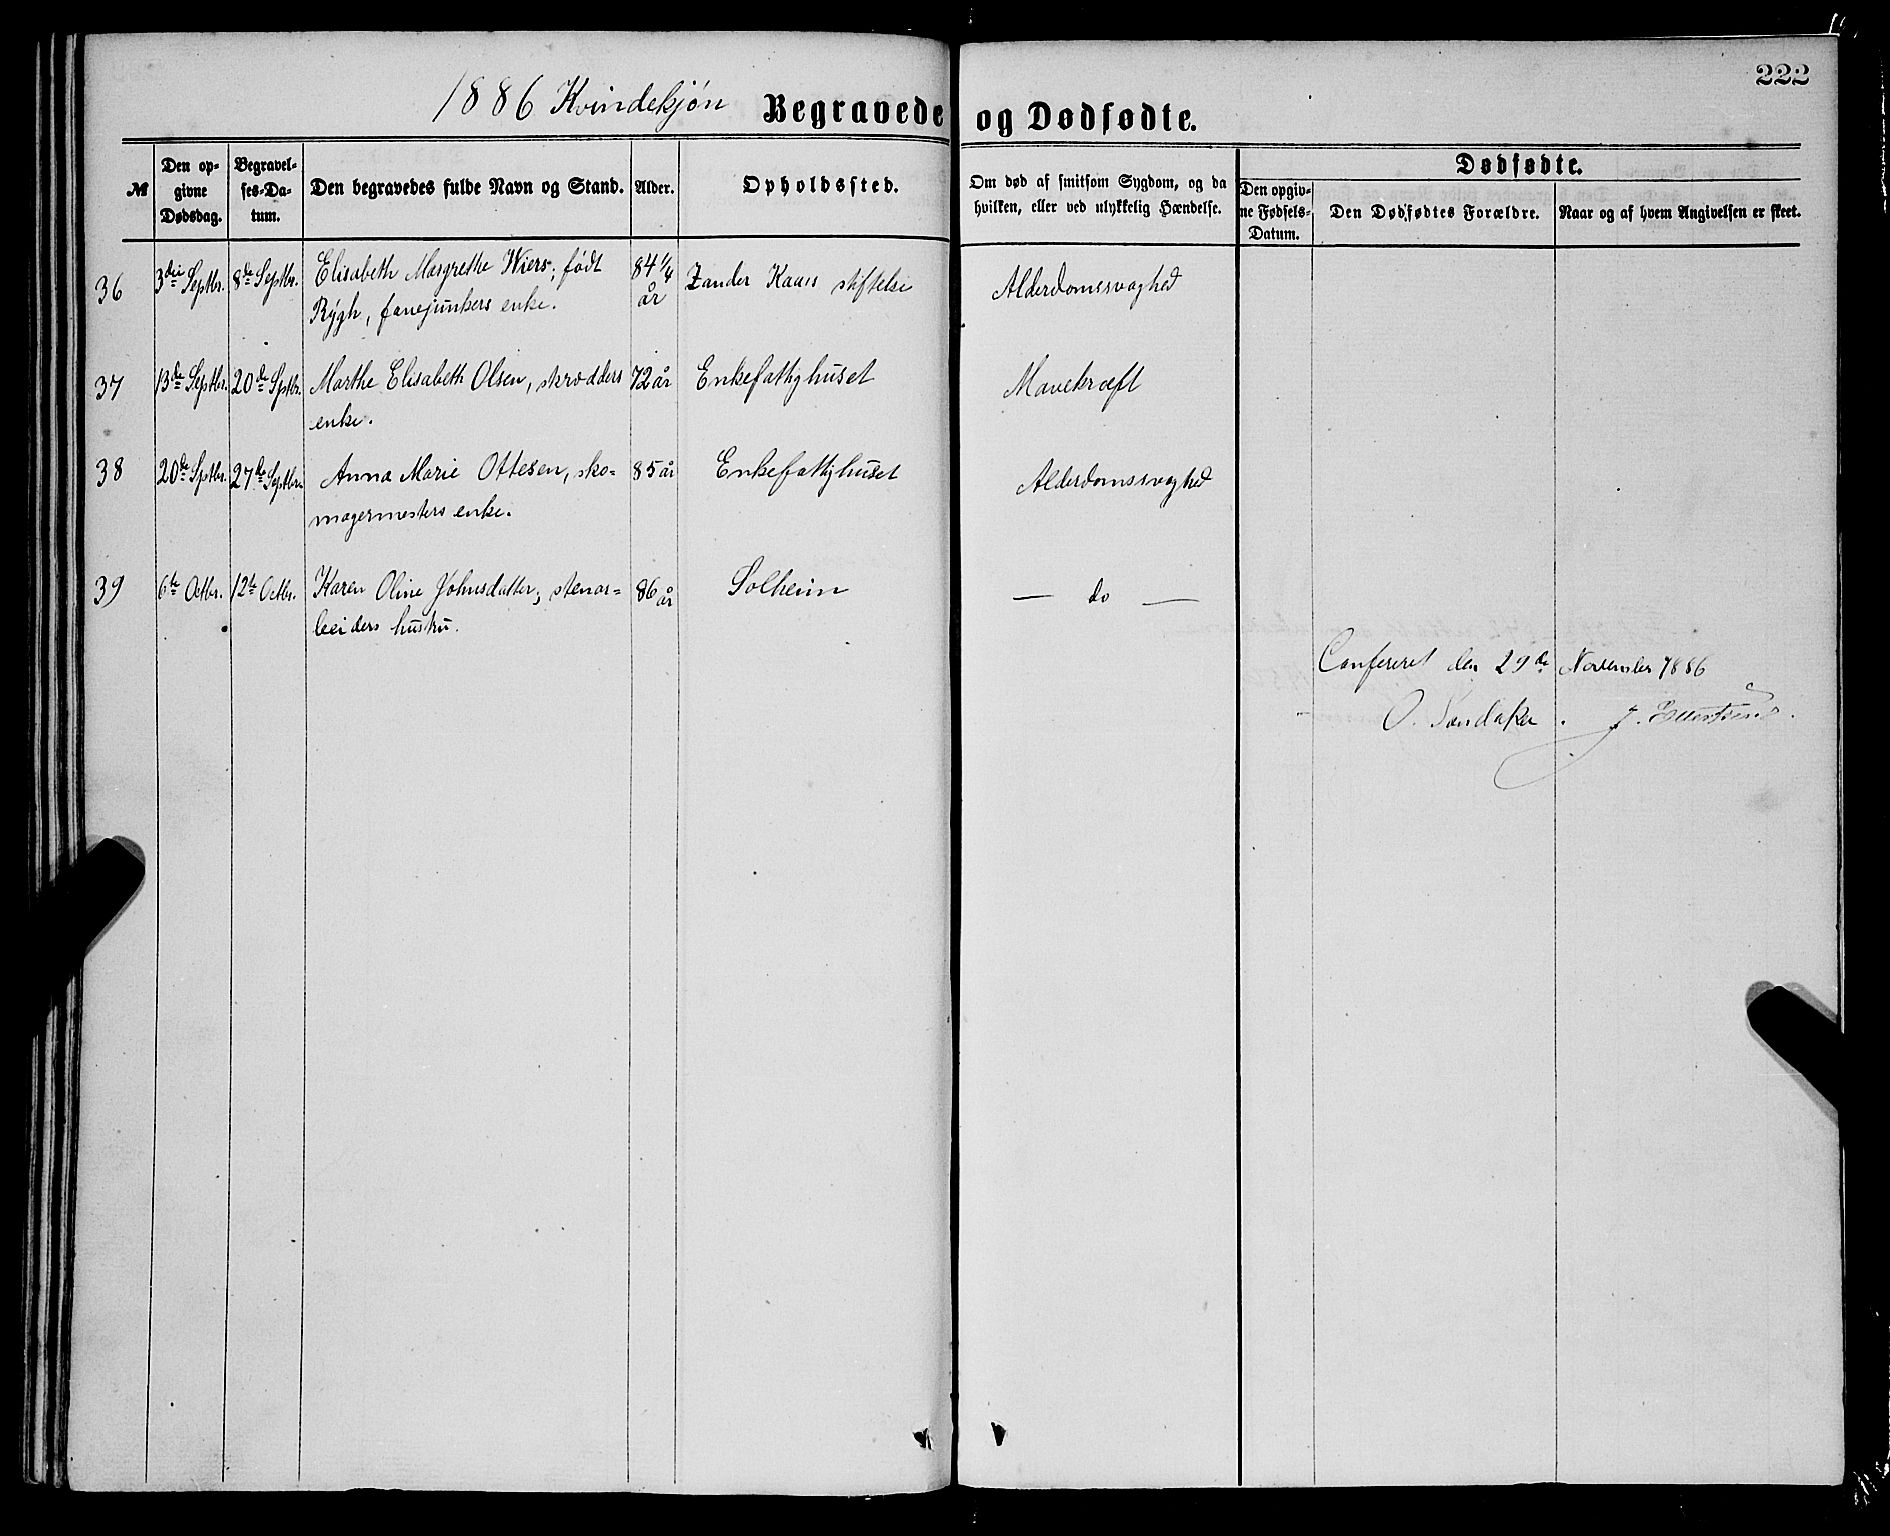 222
1886 Kvindekjøn Begravede og Dødfødte.
№ Den op- givne Dødsdag. Begravel- ses-Da- tum. Den begravedes fulde Navn og Stand. Alder. Opholdssted. Om død af smitsom Sygdom, og da hvilken, eller ved ulykkelig Hændelse. Dødfødte. Den opgiv- ne Fødsels- Datum. Den Dødfødtes Forældre. Naar og af hvem Angivelsen er skeet.
36 3die Septbr. 8de Septbr. Elisabeth Margrethe Wiers; født 84 1/4 Zander Kaaes stiftelse Alderdomssvaghed
Rÿgh, fanejunkers enke. år
37 13de Septbr. 20de Sptbr. Marthe Elisabeth Olsen, skrædders 72 år Enkefattighuset Mavekræft
enke.
38 20de Sptbr. 27de Septbr. Anna Marie Ottesen, sko- 85 år Enkefattighuset Alderdomssvaghed
magermesters enke.
39 6te Octbr. 12te Octbr. Karen Oline Johnsdatter; stenar- 86 år Solheim — do —
beiders hustru.
Confereret den 29de November 1886
O. Sandaker. J.